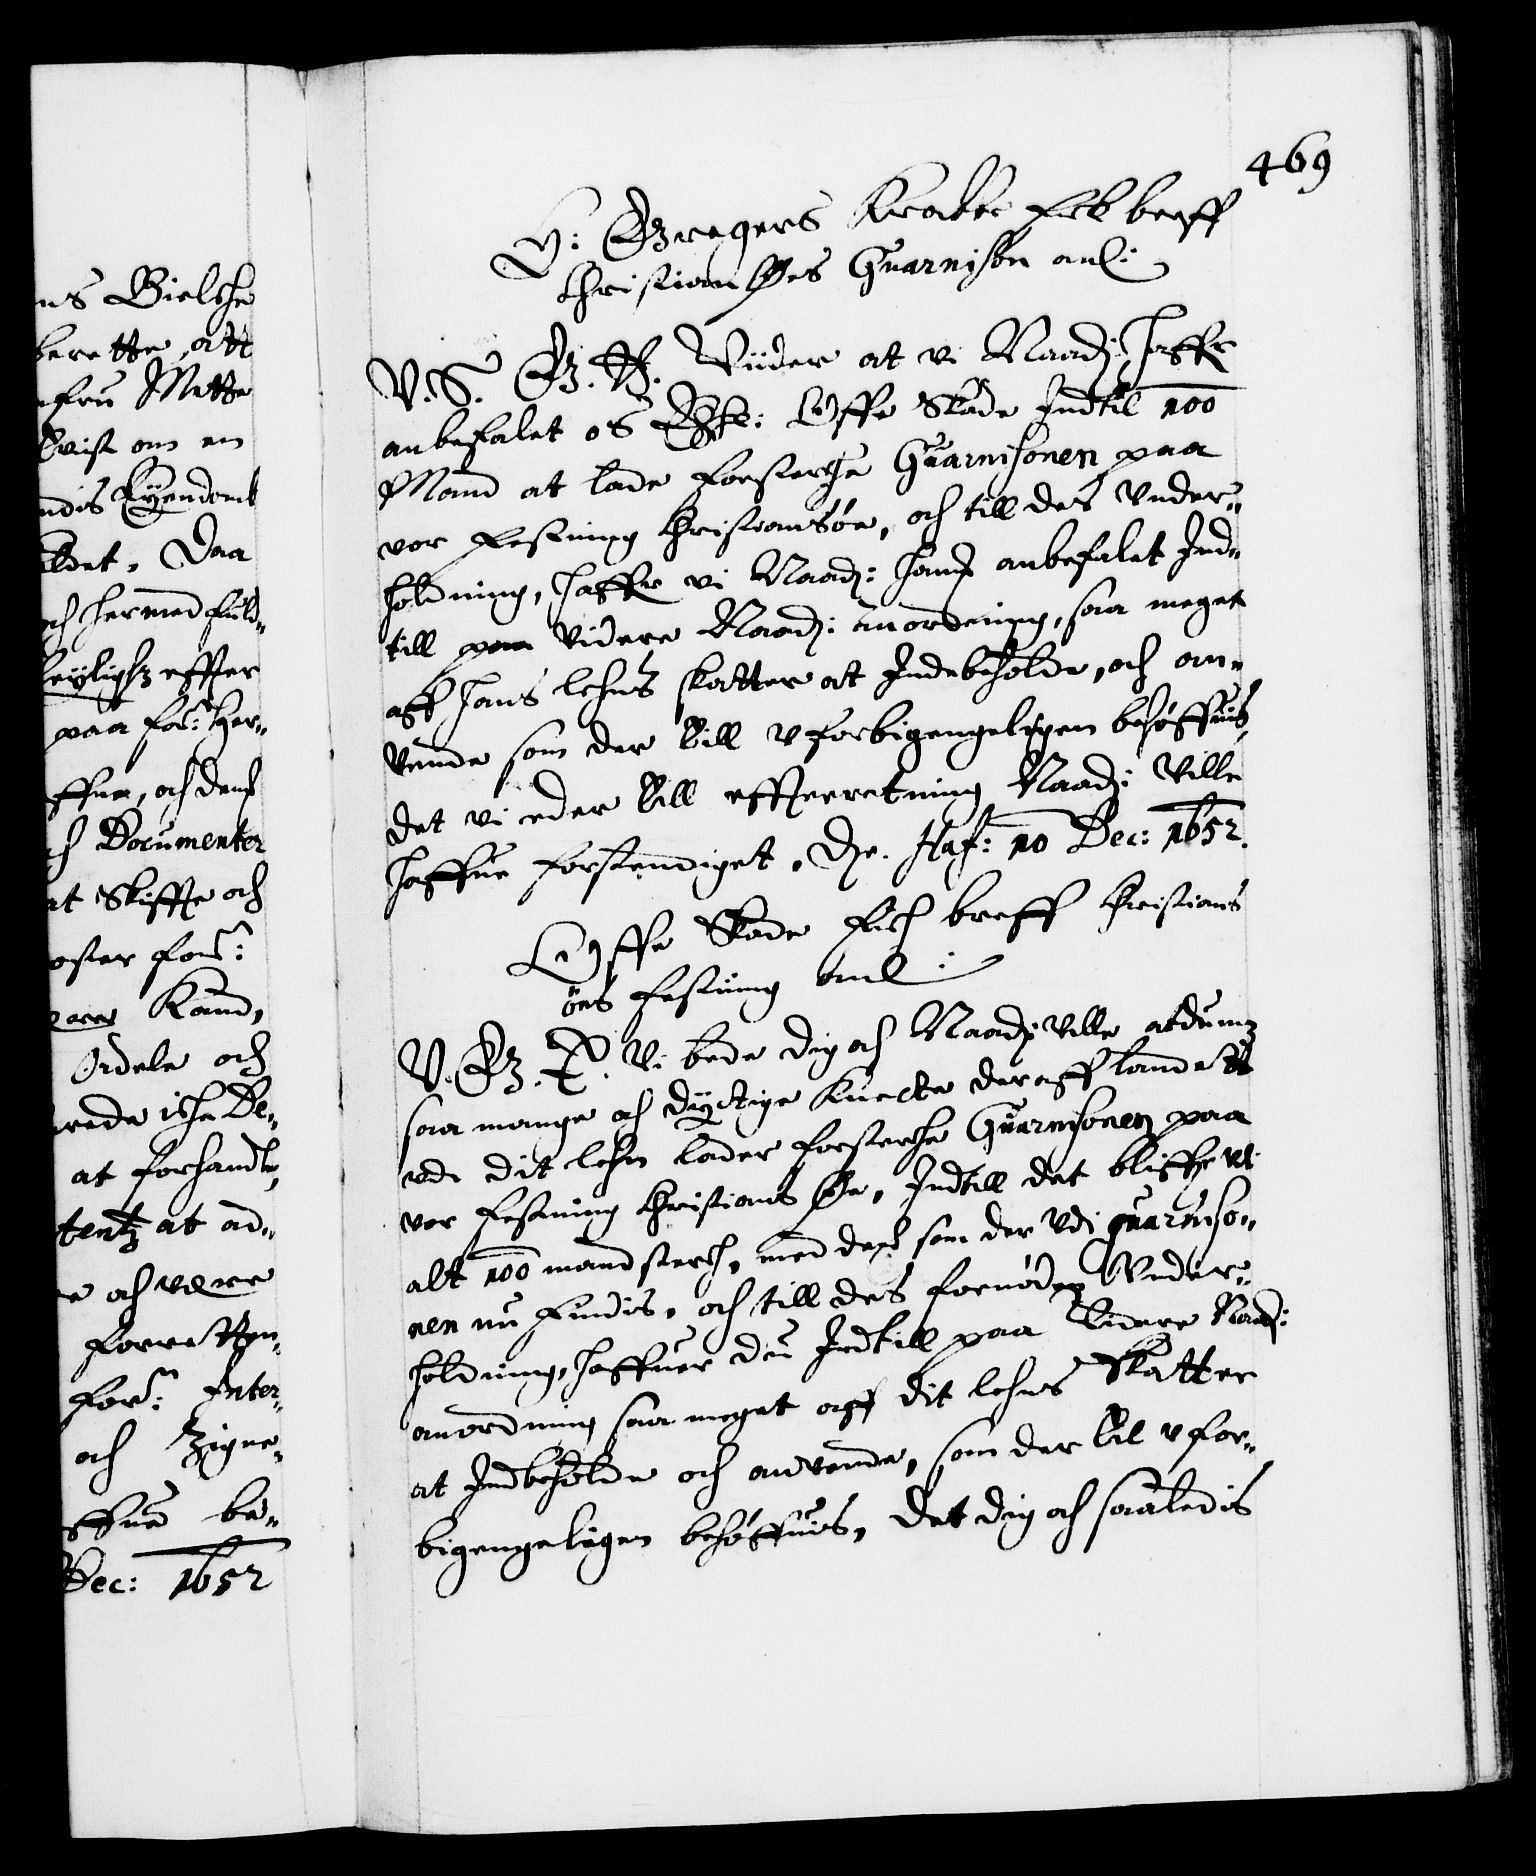 469
H: Gregers Krabbe Fik breff
Christiansøes Guarnison anl:
V. S. G. T. Viider at vi Naadj: haffr
anbefalet os Elskl: Uffe Skade Indtil 100
Mand at lade forsterche Guarnisonen paa
vor Festning Christiansøe, och till des Vnder-
holdning, haffr vi Naadj: hand anbefalet Ind-
till paa videre Naadj: anordning, saa meget
aff hans lehns skatter at Indebeholde, och an-
vende som der till vforbigengeligen behøffuis,
det vi eder till effterretning Naadj: ville
haffue forstendiget. Haf: 10 Dec: 1652.
Uffe Skade Fich breff Christians
øes Festning anl:
V. G. T. Vi bede dig och Naadj ville atdu
saa mange och dychtige Knecte der aff landett
vdi dit lehn lader forsterche Guarnisonen paa
vor Festning Christians Øe, Indtill det bliffr vdi
alt 100 mand sterch, med dess som der Vdi guarniso-
nen nu Findis, och till des fornøden Vnder-
holdning, haffuer du Indtill paa Videre Naadj:
anordning saa meget aff dit lehns Skatter
at Indbeholde och anvende, som der til vfor-
bigengeligen behøffuis, det dig och saaledis
ns Bielche
berette, att
fru Mette
Quist om en
ndis Eyendomb
ldet. Daa
ch hermed fuld-
leyligh effter
paa for: Her-
ffue, och dend
ch Documenter
at Skiffte och
oster for:
Kand,
Ordele och
rede iche De-
at forhandle,
tentz at ad-
e och være
forretten-
for: Inter-
och Zigne-
ffue be-
Dec: 1652